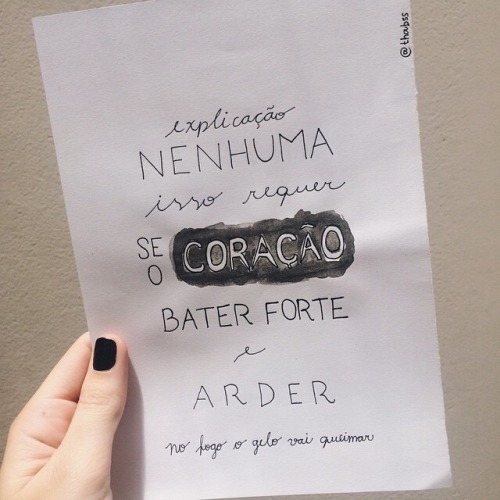 @thabss
explicação
NENHUMA
isso requer
SE O CORAÇÃO
BATER FORTE
e
ARDER
no fogo o gelo vai queimar